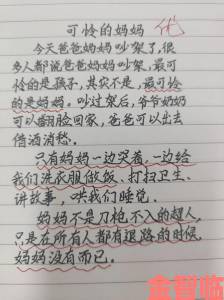 可怜的妈妈 优
今天爸爸妈妈吵架了，很
多人都说爸爸妈妈吵架，最可
怜的是孩子，其实不是，最可怜
的是妈妈。吵过架后，爷爷奶奶
可以翻脸回家，爸爸可以出去
借酒消愁。
只有妈妈一边哭着，一边给
我们洗衣服做饭、打扫卫生、
讲故事，哄我们睡觉。
妈妈不是刀枪不入的超人，
只是在所有人都有退路的时候，
妈妈没有而已。